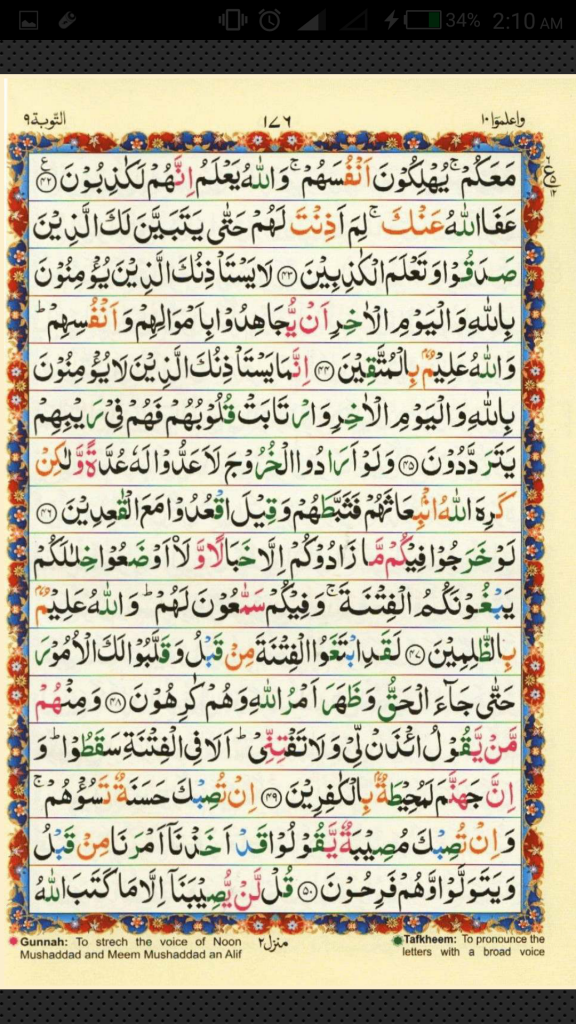 34% 2:10 AM
التوبة ٩
١٧٦
واعلموا ١٠
مَعَكُمْ ۚ يُهْلِكُوْنَ اَنْفُسَهُمْ ۚ وَاللّٰهُ يَعْلَمُ اِنَّهُمْ لَكٰذِبُوْنَ ﴿۴۲﴾
عَفَا اللّٰهُ عَنْكَ ۚ لِمَ اَذِنْتَ لَهُمْ حَتّٰى يَتَبَيَّنَ لَكَ الَّذِيْنَ
صَدَقُوْا وَتَعْلَمَ الْكٰذِبِيْنَ ﴿۴۳﴾ لَا يَسْتَاْذِنُكَ الَّذِيْنَ يُؤْمِنُوْنَ
بِاللّٰهِ وَالْيَوْمِ الْاٰخِرِ اَنْ يُّجَاهِدُوْا بِاَمْوَالِهِمْ وَاَنْفُسِهِمْ ؕ
وَاللّٰهُ عَلِيْمٌۢ بِالْمُتَّقِيْنَ ﴿۴۴﴾ اِنَّمَا يَسْتَاْذِنُكَ الَّذِيْنَ لَا يُؤْمِنُوْنَ
بِاللّٰهِ وَالْيَوْمِ الْاٰخِرِ وَارْتَابَتْ قُلُوْبُهُمْ فَهُمْ فِىْ رَيْبِهِمْ
يَتَرَدَّدُوْنَ ﴿۴۵﴾ وَلَوْ اَرَادُوا الْخُرُوْجَ لَاَعَدُّوْا لَهٗ عُدَّةً وَّلٰكِنْ
كَرِهَ اللّٰهُ انْۢبِعَاثَهُمْ فَثَبَّطَهُمْ وَقِيْلَ اقْعُدُوْا مَعَ الْقٰعِدِيْنَ ﴿۴۶﴾
لَوْ خَرَجُوْا فِيْكُمْ مَّا زَادُوْكُمْ اِلَّا خَبَالًا وَّلَا۟اَوْضَعُوْا خِلٰلَكُمْ
يَبْغُوْنَكُمُ الْفِتْنَةَ ۚ وَفِيْكُمْ سَمّٰعُوْنَ لَهُمْ ؕ وَاللّٰهُ عَلِيْمٌۢ
بِالظّٰلِمِيْنَ ﴿۴۷﴾ لَقَدِ ابْتَغَوُا الْفِتْنَةَ مِنْ قَبْلُ وَقَلَّبُوْا لَكَ الْاُمُوْرَ
حَتّٰى جَآءَ الْحَقُّ وَظَهَرَ اَمْرُ اللّٰهِ وَهُمْ كٰرِهُوْنَ ﴿۴۸﴾ وَمِنْهُمْ
مَّنْ يَّقُوْلُ ائْذَنْ لِّىْ وَلَا تَفْتِنِّىْ ؕ اَلَا فِى الْفِتْنَةِ سَقَطُوْا ؕ وَ
اِنَّ جَهَنَّمَ لَمُحِيْطَةٌۢ بِالْكٰفِرِيْنَ ﴿۴۹﴾ اِنْ تُصِبْكَ حَسَنَةٌ تَسُؤْهُمْ ۚ
وَاِنْ تُصِبْكَ مُصِيْبَةٌ يَّقُوْلُوْا قَدْ اَخَذْنَاۤ اَمْرَنَا مِنْ قَبْلُ
وَيَتَوَلَّوْا وَّهُمْ فَرِحُوْنَ ﴿۵۰﴾ قُلْ لَّنْ يُّصِيْبَنَاۤ اِلَّا مَا كَتَبَ اللّٰهُ
Gunnah: To strech the voice of Noon
Mushaddad and Meem Mushaddad an Alif
منزل ٢
Tafkheem: To pronounce the
letters with a broad voice